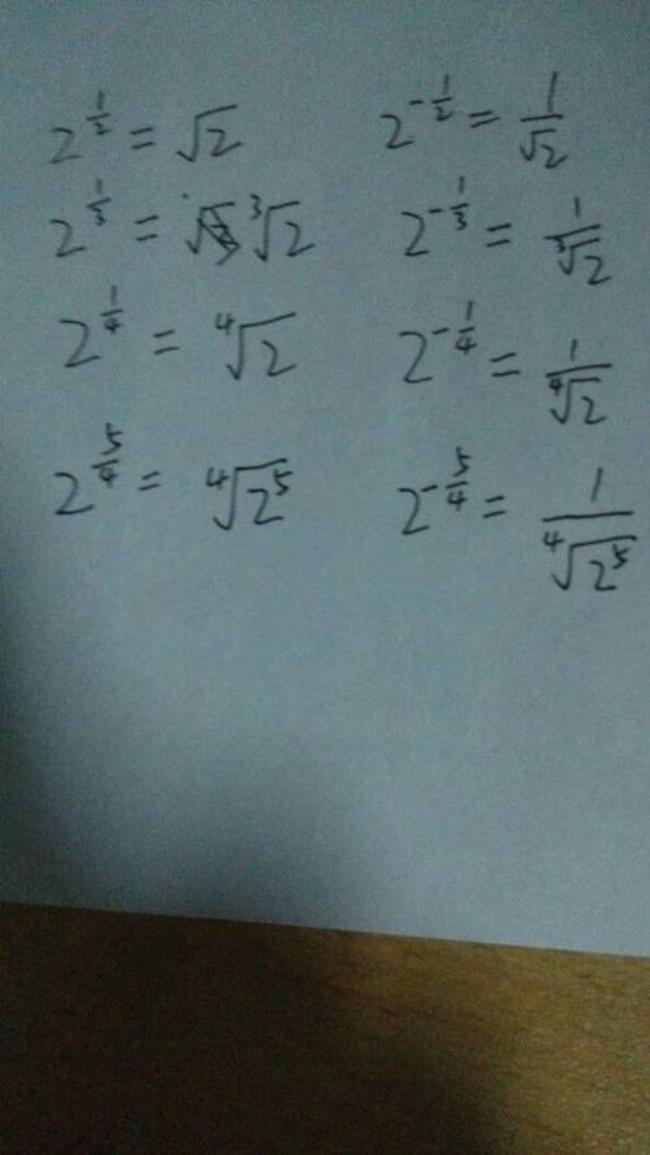 2^{1/2} = √2    2^{-1/2} = 1/√2
2^{1/3} = ∛2    2^{-1/3} = 1/∛2
2^{1/4} = ∜2    2^{-1/4} = 1/∜2
2^{5/4} = ∜(2^5)    2^{-5/4} = 1/∜(2^5)